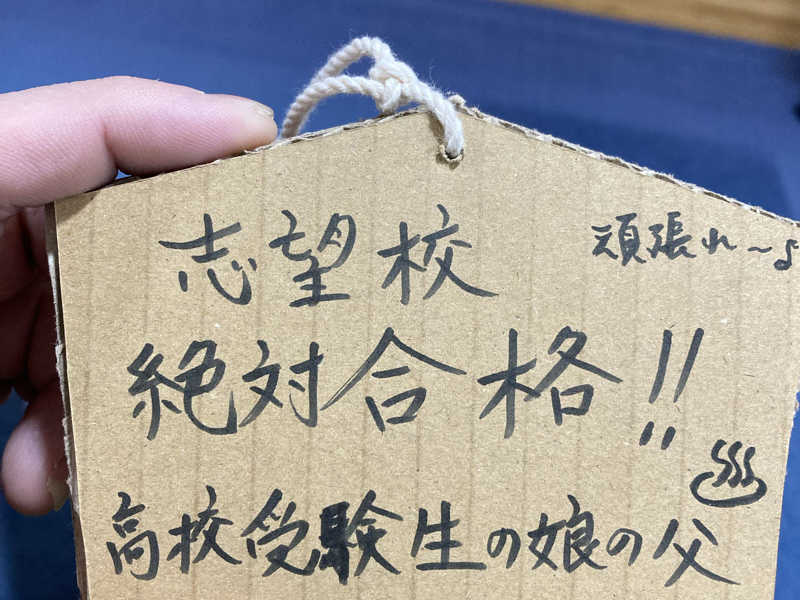 頑張れ〜♪
志望校
絶対合格!!
♨
高校受験生の娘の父